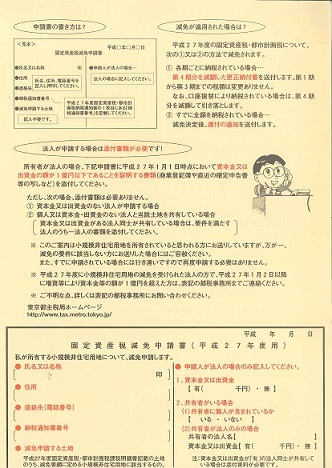 申請書の書き方は?
<見本>
平成○年○月○日
固定資産税減免申請書
●氏名又は名称
●住所
●連絡先
●納税通知書番号
●減免申請する土地
氏名、住所、電話番号を記入し押印してください。
●申請人が法人の場合…
法人の場合に記入してください。
記入不要です。
減免が適用された場合は?
平成27年度の固定資産税・都市計画税について、
次の①又は②の方法で減免されます。
① 各期ごとに納税されている場合…
第4期分を減額した更正納付書を送付します。第1期
から第3期までの税額は変更ありません。
なお、口座振替により納税されている場合は、第4期
分を減額して引き落とします。
② すでに全額を納税されている場合…
減免決定後、還付の通知を送付します。
法人が申請する場合は添付書類が必要です!
所有者が法人の場合、下記申請書に平成27年1月1日時点において資本金又は
出資金の額が1億円以下であることを証明する書類(商業登記簿や直近の確定申告書
等の写しなど)を添付してください。
ただし、次の場合、添付書類は必要ありません。
① 資本金又は出資金のない法人が申請する場合
② 個人又は資本金・出資金のない法人と当該土地を共有している場合
資本金又は出資金がある法人同士が共有している場合は、要件を満たす
法人のうち一法人の書類を添付してください。
※ このご案内は小規模非住宅用地を所有していると思われる方にお送りしていますが、万が一、
減免の要件に該当しない方にお送りした場合にはご容赦ください。
また、すでに申請されている場合には行き違いですので再度申請する必要はありません。
※ 平成27年度に小規模非住宅用地の減免を受けられた法人の方で、平成27年1月2日以降
に増資等により資本金等の額が1億円を超えた方は、表記の都税事務所までご連絡ください。
※ ご不明な点、詳しくは表記の都税事務所にお問い合わせください。
東京都主税局ホームページ
http://www.tax.metro.tokyo.jp/
平成 年 月 日
固定資産税減免申請書(平成27年度用)
私が所有する小規模非住宅用地について、減免申請します。
● 氏名又は名称
印
● 住所
● 連絡先(電話番号)
● 納税通知書番号
● 減免申請する土地
平成27年度固定資産税・都市計画税課税明細書記載の土地
のうち、減免要綱に定める小規模非住宅用地に該当するもの。
● 申請人が法人の場合のみ記入してください。
1.資本金又は出資金
【 有( 千円)・ 無 】
2.共有者がいる場合
(1)共有者に個人が含まれているか
【 いる ・ いない 】
(2)共有者が法人のみの場合
共有者の法人名【 】
資本金又は出資金【 有( 千円)・ 無 】
注:資本金又は出資金が「有」の法人同士が共有して
いる場合は添付資料が必要です。